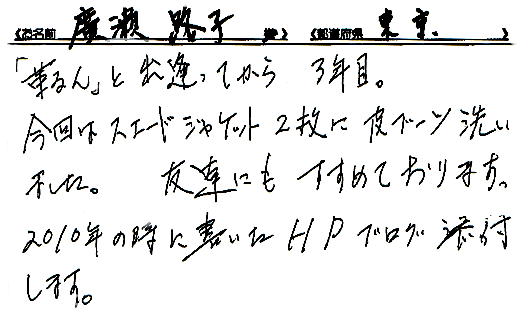 《お名前 廣瀬 路子 様》 《都道府県 東京 》
「革るん」と出逢ってから 3年目。
今回はスエードジャケット2枚に皮ブーツ洗い
ました。 友達にも すすめております。
2010年の時に書いたHPブログ添付
します。